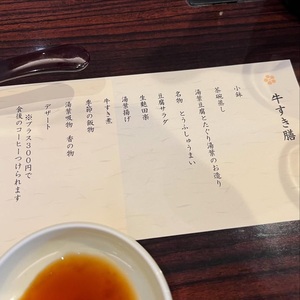 牛すき膳
小鉢
茶碗蒸し
湯葉豆腐とたぐり湯葉のお造り
名物 とうふしゅうまい
豆腐サラダ
生麩田楽
湯葉揚げ
牛すき煮
季節の飯物
湯葉吸物 香の物
デザート
※プラス300円で
食後のコーヒーつけられます